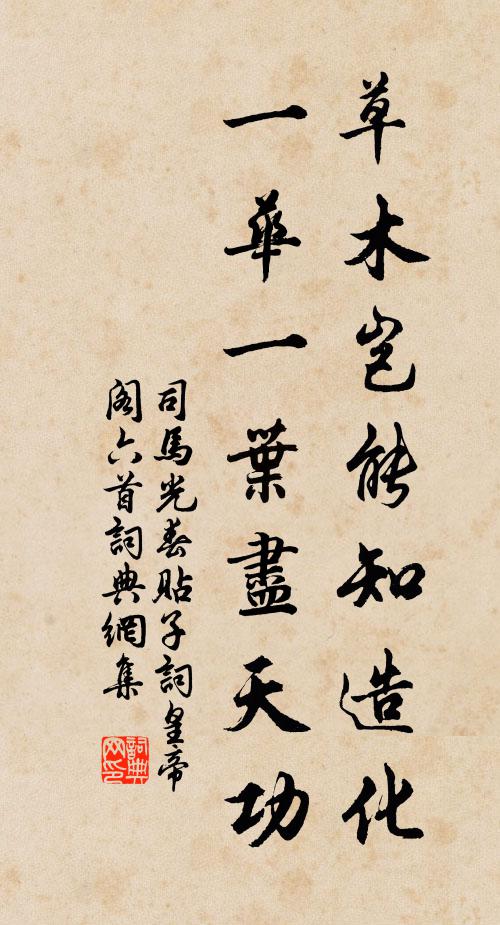 草木豈能知造化
一華一葉盡天功
司馬光春貼子詞皇帝
閣六首詞典網集
詞典網印